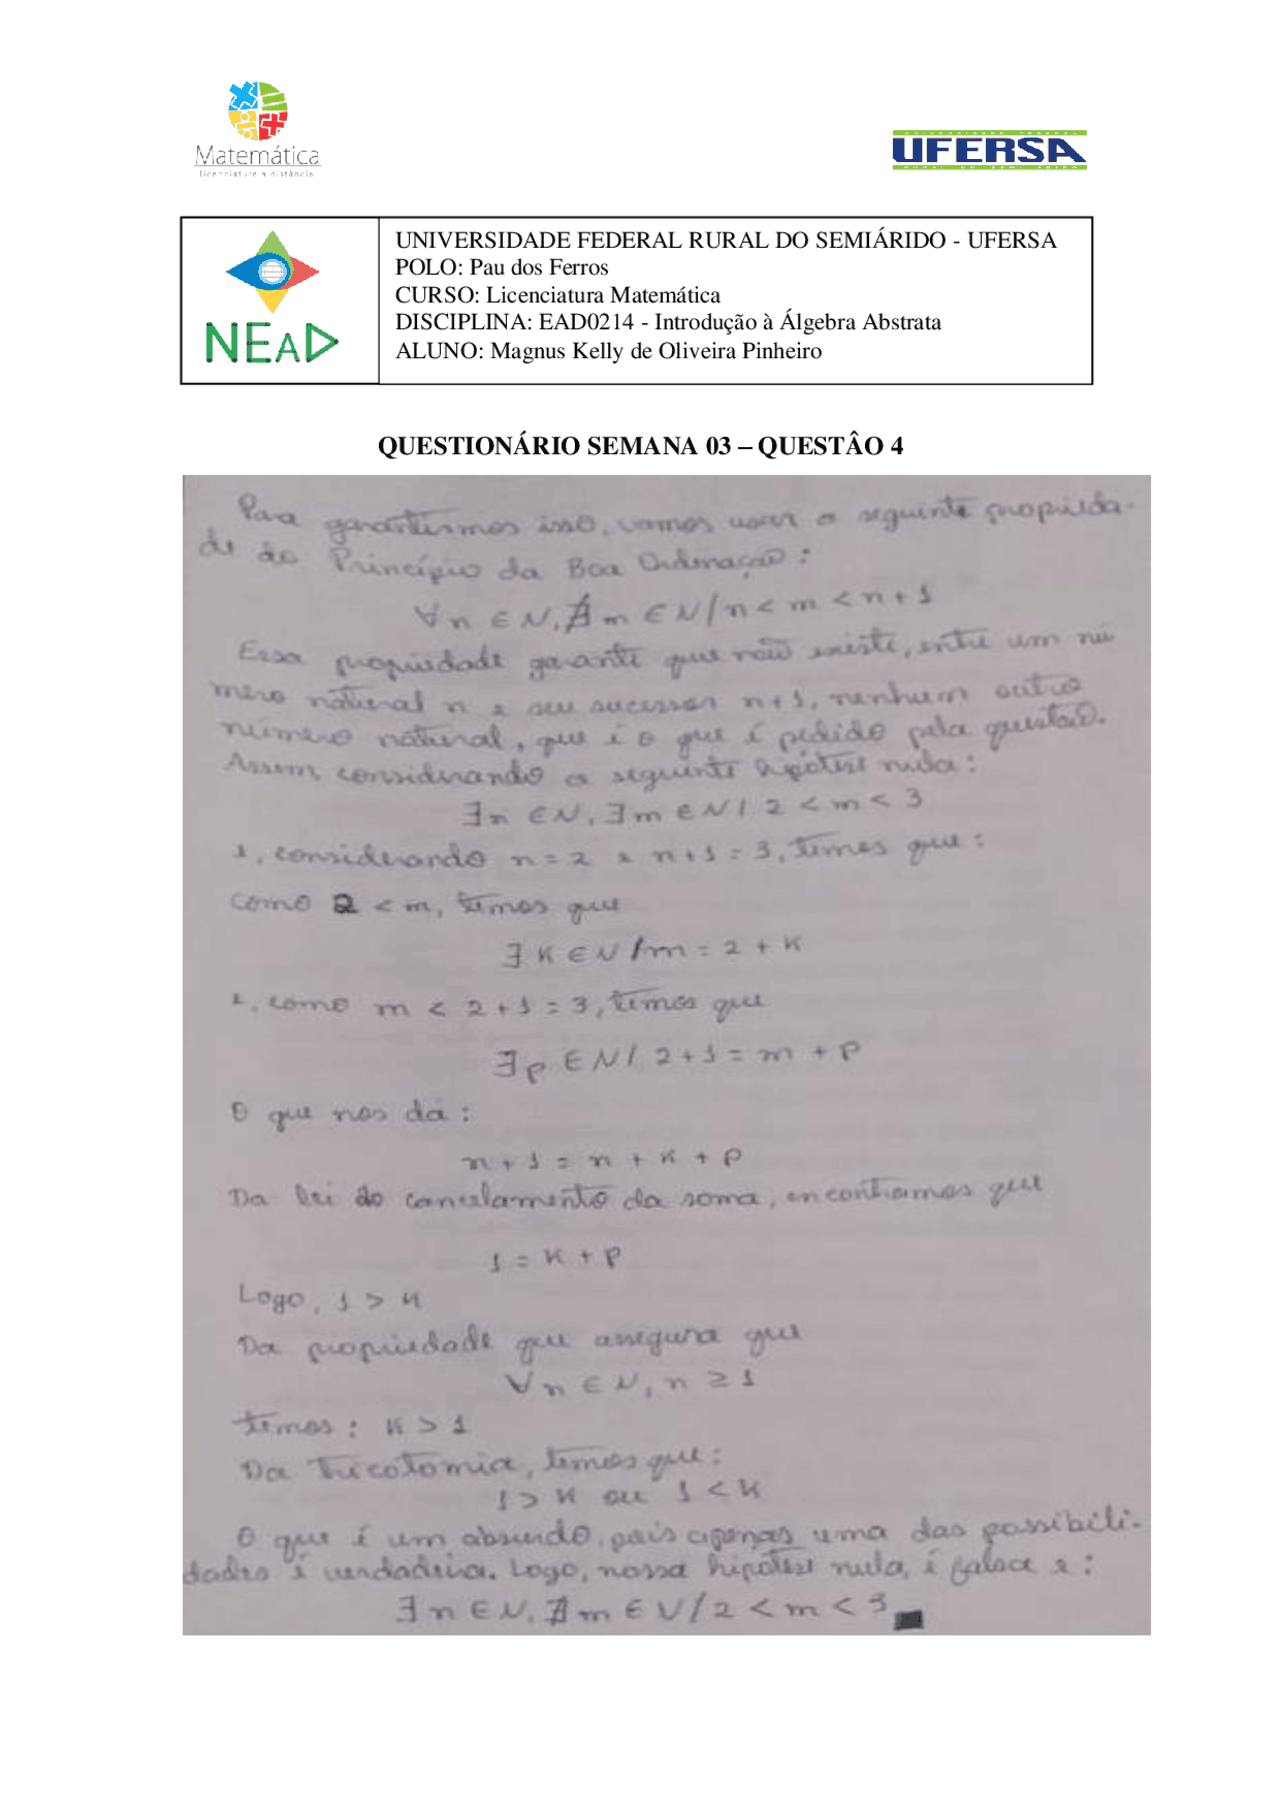 Matemática
Licenciatura a distância
UFERSA
NEAD
UNIVERSIDADE FEDERAL RURAL DO SEMIÁRIDO - UFERSA
POLO: Pau dos Ferros
CURSO: Licenciatura Matemática
DISCIPLINA: EAD0214 - Introdução à Álgebra Abstrata
ALUNO: Magnus Kelly de Oliveira Pinheiro
QUESTIONÁRIO SEMANA 03 – QUESTÂO 4
Para garantirmos isso, vamos usar a seguinte proprieda-
de do Princípio da Boa Ordenação:
∀n ∈ N, ∄ m ∈ N / n < m < n + 1
Essa propriedade garante que não existe, entre um nú
mero natural n e seu sucessor n+1, nenhum outro
número natural, que é o que é pedido pela questão.
Assim, considerando a seguinte hipótese nula:
∃n ∈ N, ∃m ∈ N / 2 < m < 3
e, considerando n = 2 e n+1 = 3, temos que:
como 2 < m, temos que
∃ K ∈ N / m = 2 + K
e, como m < 2 + 1 = 3, temos que
∃p ∈ N / 2 + 1 = m + p
O que nos dá:
n + 1 = n + K + p
Da lei do cancelamento da soma, encontramos que
1 = K + p
Logo, 1 > K
Da propriedade que assegura que
∀n ∈ N, n ≥ 1
temos: K > 1
Da Tricotomia, temos que:
1 > K ou 1 < K
O que é um absurdo, pois apenas uma das possibili-
dades é verdadeira. Logo, nossa hipótese nula, é falsa e:
∃n ∈ N, ∄ m ∈ N / 2 < m < 3